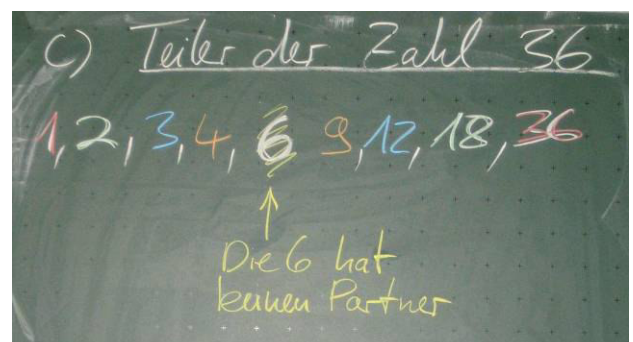 C) Teiler der Zahl 36
1, 2, 3, 4, 6 9, 12, 18, 36
Die 6 hat
keinen Partner